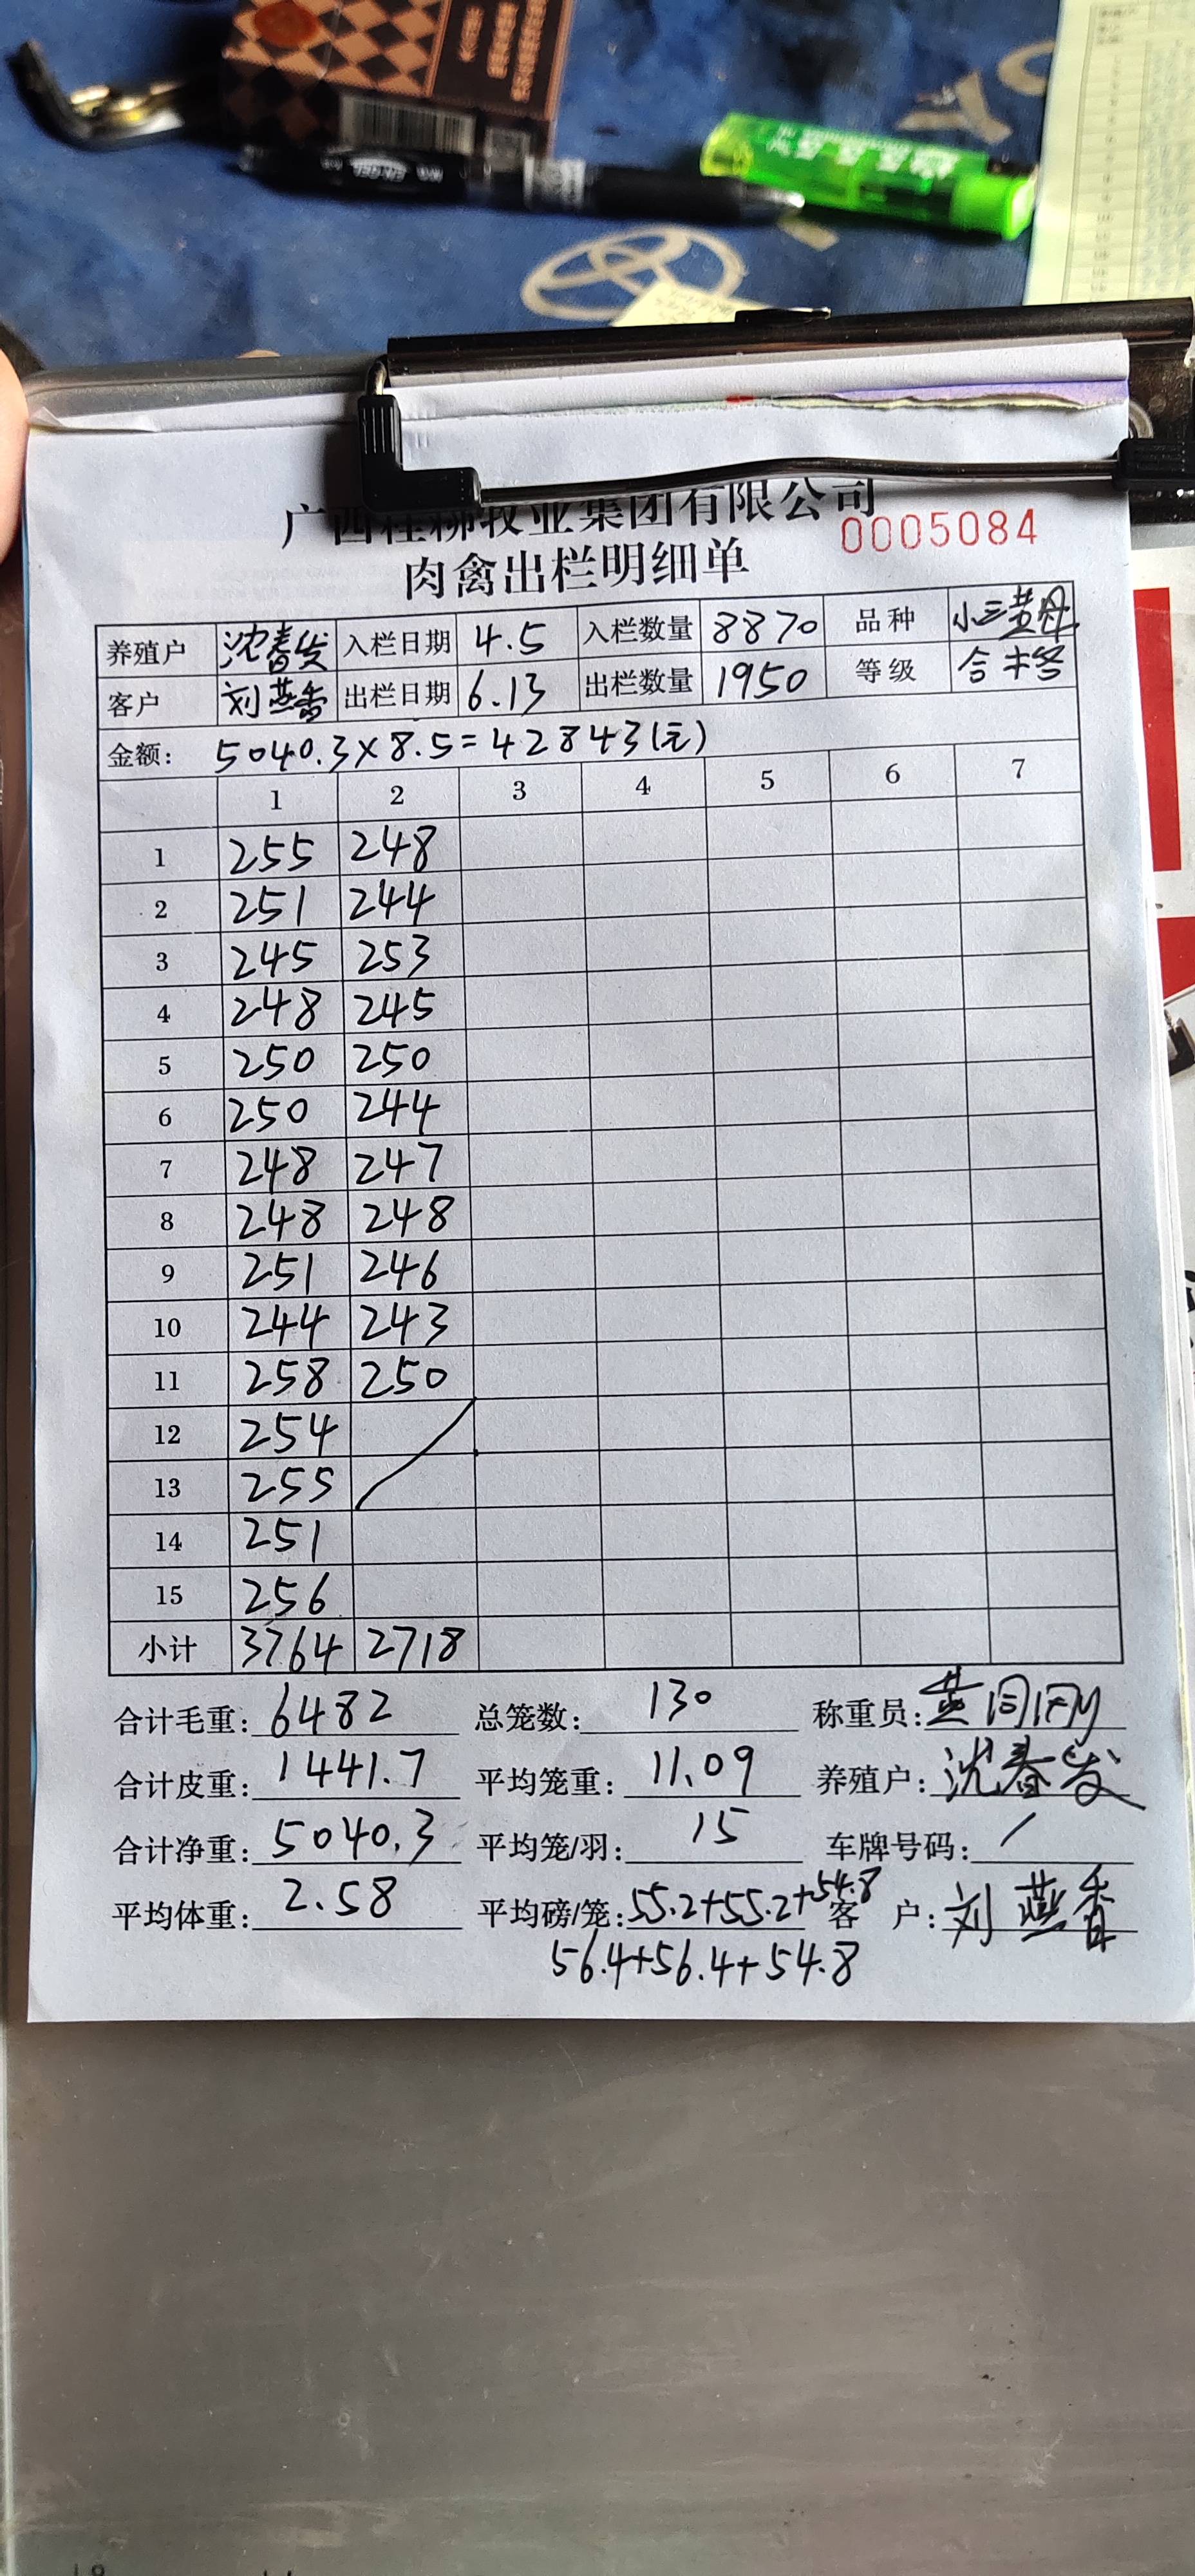 广西桂柳牧业集团有限公司
肉禽出栏明细单 0005084
养殖户 沈春发 入栏日期 4.5 入栏数量 8870 品种 小三黄母
客户 刘燕香 出栏日期 6.13 出栏数量 1950 等级 合格
金额: 5040.3×8.5=42843(元)
1 2 3 4 5 6 7
1 255 248
2 251 244
3 245 253
4 248 245
5 250 250
6 250 244
7 248 247
8 248 248
9 251 246
10 244 243
11 258 250
12 254
13 255
14 251
15 256
小计 3764 2718
合计毛重: 6482 总笼数: 130 称重员: 黄
合计皮重: 1441.7 平均笼重: 11.09 养殖户: 沈春发
合计净重: 5040.3 平均笼/羽: 15 车牌号码: /
平均体重: 2.58 平均磅/笼: 55.2+55.2+54.8 客 户: 刘燕香
56.4+56.4+54.8